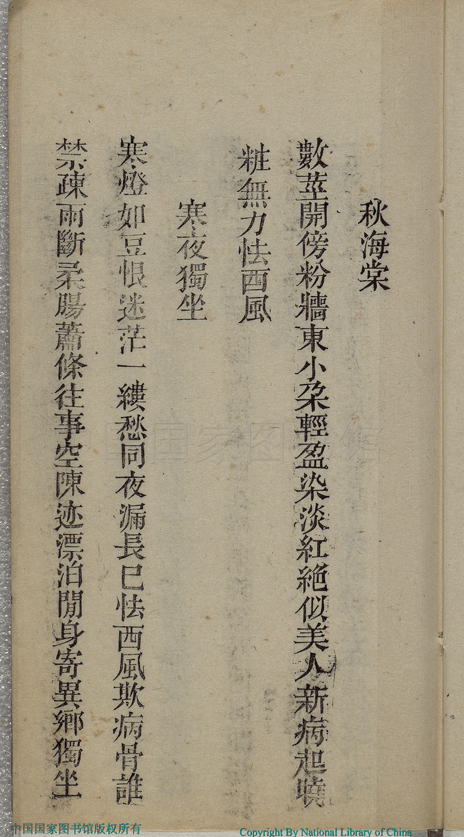 秋海棠
數莖開傍粉牆東小朶輕盈染淡紅絶似美人新病起曉
粧無力怯西風
寒夜獨坐
寒燈如豆恨迷茫一縷愁同夜漏長已怯西風欺病骨誰
禁疎雨斷柔腸蕭條往事空陳迹漂泊閒身寄異鄉獨坐
中国国家图书馆
中国国家图书馆版权所有
Copyright By National Library of China